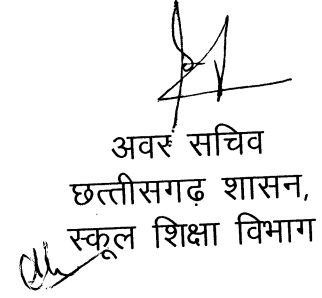 अवर सचिव
छत्तीसगढ़ शासन,
स्कूल शिक्षा विभाग